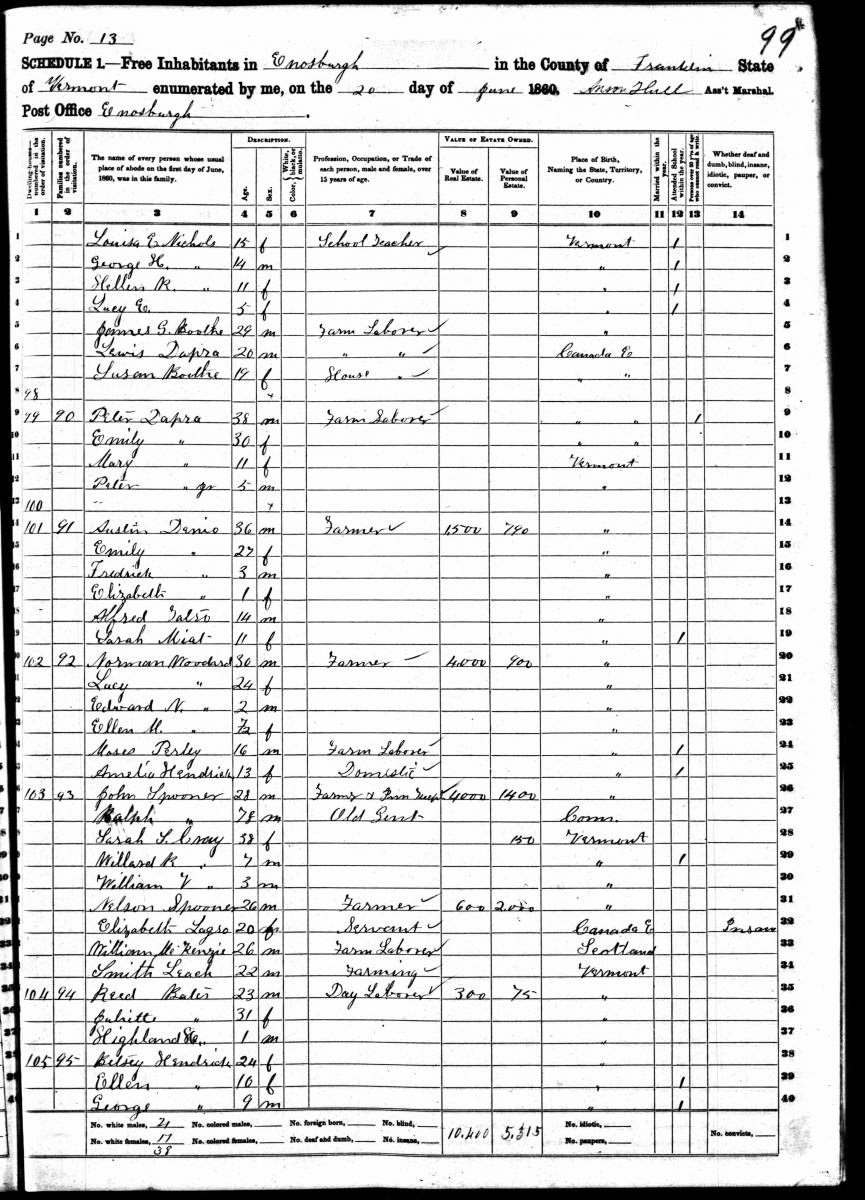 99
Page No. 13
SCHEDULE 1.—Free Inhabitants in Enosburgh in the County of Franklin State
of Vermont enumerated by me, on the 20 day of June 1860. Anson Hull Ass't Marshal.
Post Office Enosburgh.
Dwelling-houses—numbered in the order of visitation.
Families numbered in the order of visitation.
The name of every person whose usual place of abode on the first day of June, 1860, was in this family.
DESCRIPTION.
Age.
Sex.
Color, White, black, or mulatto.
Profession, Occupation, or Trade of each person, male and female, over 15 years of age.
VALUE OF ESTATE OWNED.
Value of Real Estate.
Value of Personal Estate.
Place of Birth, Naming the State, Territory, or Country.
Married within the year.
Attended School within the year.
Persons over 20 years of age who cannot read & write.
Whether deaf and dumb, blind, insane, idiotic, pauper, or convict.
1 2 3 4 5 6 7 8 9 10 11 12 13 14
1 Louisa E. Nichols 15 f School Teacher Vermont 1 1
2 George H. " 14 m " 1 2
3 Hellen R. " 11 f " 1 3
4 Lucy E. 5 f " 1 4
5 James G. Boothe 29 m Farm Laborer " 5
6 Lewis Dapra 20 m " " Canada E 6
7 Susan Boothe 19 f House " " " 7
8 98 8
9 99 90 Peter Dapra 38 m Farm Laborer " " 1 9
10 Emily " 30 f " " 10
11 Mary " 11 f Vermont 11
12 Peter " Jr 5 m " 12
13 100 " 13
14 101 91 Austin Denio 36 m Farmer 1,500 790 " 14
15 Emily " 27 f " 15
16 Fredrick " 3 m " 16
17 Elizabeth " 1 f " 17
18 Alfred 14 m " 18
19 Sarah 11 f " 1 19
20 102 92 Norman Woodard 30 m Farmer 4,000 900 " 20
21 Lucy " 24 f " 21
22 Edward N. " 2 m " 22
23 Ellen M. " f " 23
24 Moses Perley 16 m Farm Laborer " 1 24
25 Amelia Hendrick 13 f Domestic " 1 25
26 103 93 John Spooner 28 m Farmer & 4000 1400 " 26
27 Ralph " 78 m Old Gent Conn. 27
28 Sarah S. Cray 38 f 150 Vermont 28
29 Willard R " 7 m " 1 29
30 William V " 3 m " 30
31 Nelson Spooner 26 m Farmer 600 2,000 " 31
32 Elizabeth Lagro 20 f Servant Canada E 32
33 William McKenzie 26 m Farm Laborer Scotland 33
34 Smith Leach 22 m Farming Vermont 34
35 104 94 Reed Bates 23 m Day Laborer 300 75 " 35
36 Juliette " 31 f " 36
37 Highland " 1 m " 37
38 105 95 Betsey Hendrick 24 f 38
39 Ellen " 10 f " 1 39
40 George " 9 m " 1 40
No. white males, 21 No. colored males, No. foreign born, No. blind,
No. white females, 17 No. colored females, No. deaf and dumb, No. insane,
38
10,400 5,315
No. idiotic,
No. paupers,
No. convicts,